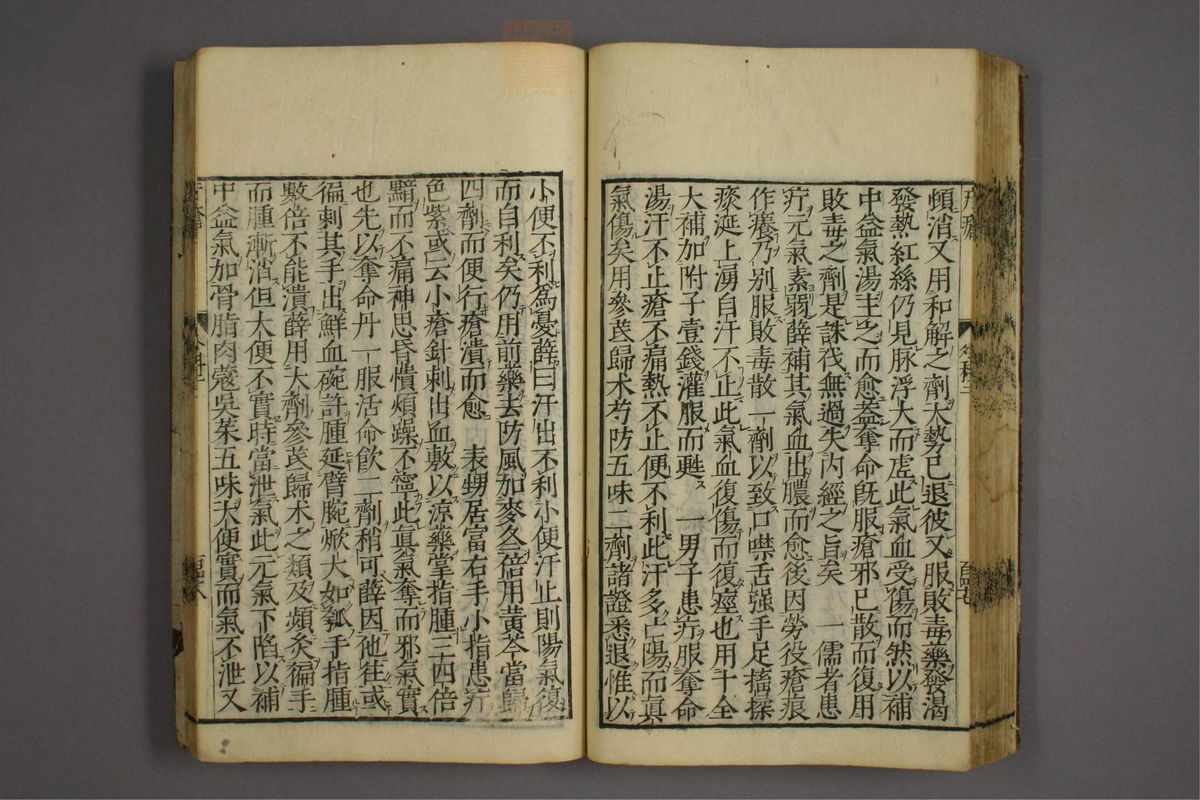 頓消又用和解之劑大勢已退彼又服敗毒藥發渴
發熱紅絲仍見脉浮大而虛此氣血受傷而然以補
中益氣湯主之而愈蓋奪命旣服瘡邪已散而復用
敗毒之劑是誅伐無過失內經之旨矣 一儒者患
疔元氣素弱薛補其氣血出膿而愈後因勞役瘡痕
作癢乃別服敗毒散一劑以致口噤舌强手足搐搦
痰延上湧自汗不止此氣血復傷而復痙也用十全
大補加附子壹錢灌服而甦 一男子患疔服奪命
湯汗不止瘡不痛熱不止便不利此汗多亡陽而眞
氣傷矣用參芪歸术芍防五味二劑諸證悉退惟以
小便不利爲憂薛曰汗出不利小便汗止則陽氣復
而自利矣仍用前藥去防風加麥冬倍用黃芩當歸
四劑而便行瘡潰而愈 表甥居富右手小指患疔
色紫或云小瘡針刺出血敷以涼藥掌指腫三四倍
黯而不痛神思昏憒煩躁不寧此眞氣奪而邪氣實
也先以奪命丹一服活命飮二劑稍可薛因他往或
徧刺其手出鮮血碗許腫延臂腕焮大如瓠手指腫
數倍不能潰薛用大劑參芪歸术之類及頻灸徧手
而腫漸消但大便不實時當泄氣此元氣下陷以補
中益氣加骨脂肉蔻吳茱五味大便實而氣不泄又